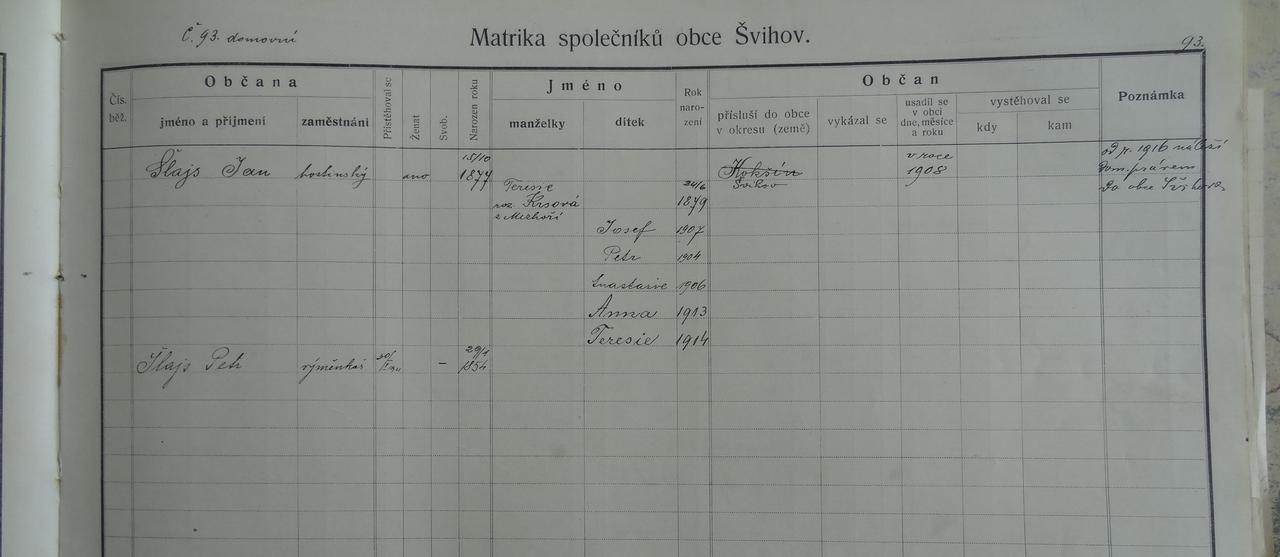 Č. 93. domovní
Matrika společníků obce Švihov.
93.
Čís. běž.
Občana
jméno a příjmení
zaměstnání
Přistěhoval se
Ženat
Svob.
Narozen roku
Jméno
manželky
dítek
Rok naro- zení
Občan
přísluší do obce v okresu (země)
vykázal se
usadil se v obci dne, měsíce a roku
vystěhoval se
kdy
kam
Poznámka
Šlajs Jan hostinský ano 15/10 1877
Kokšín
Švihov
v roce
1908
od r. 1916 náleží
dom. právem
do obce Švihova
Teresie
roz. Krsová
z Mezhoří
24/6
1879
Josef 1907
Petr 1904
Anastasie 1906
Anna 1913
Teresie 1914
Šlajs Petr výměnkář – 29/1 1854